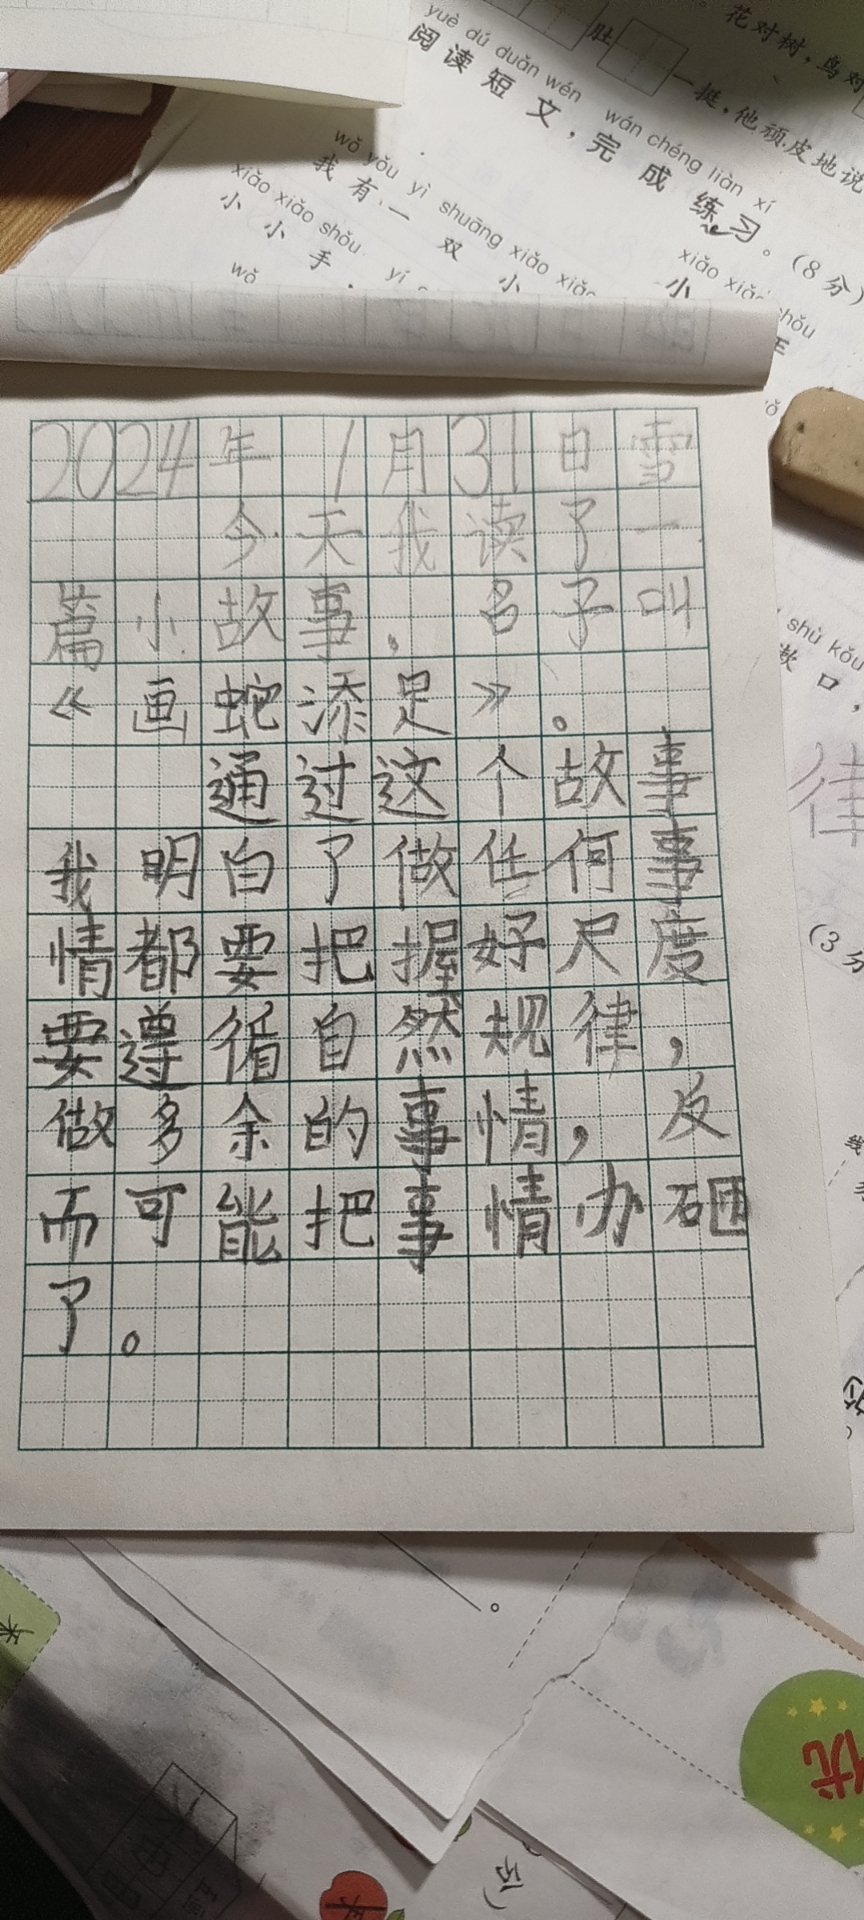 花对树，鸟对
肚
一挺，他顽皮地说
yuè dú duǎn wén wán chéng liàn xí
阅读短文，完成练习。（8分）
wǒ yǒu yì shuāng xiǎo xiǎo
我有一双小小
xiǎo xiǎo shǒu yí
小小手，
wǒ
2024年1月31日雪
今天我读了一
篇小故事，名子叫
《画蛇添足》。
通过这个故事
我明白了做任何事
情都要把握好尺度
要遵循自然规律，
做多余的事情，反
而可能把事情办砸
了。
shù kǒu
漱口，
律
（3分
优